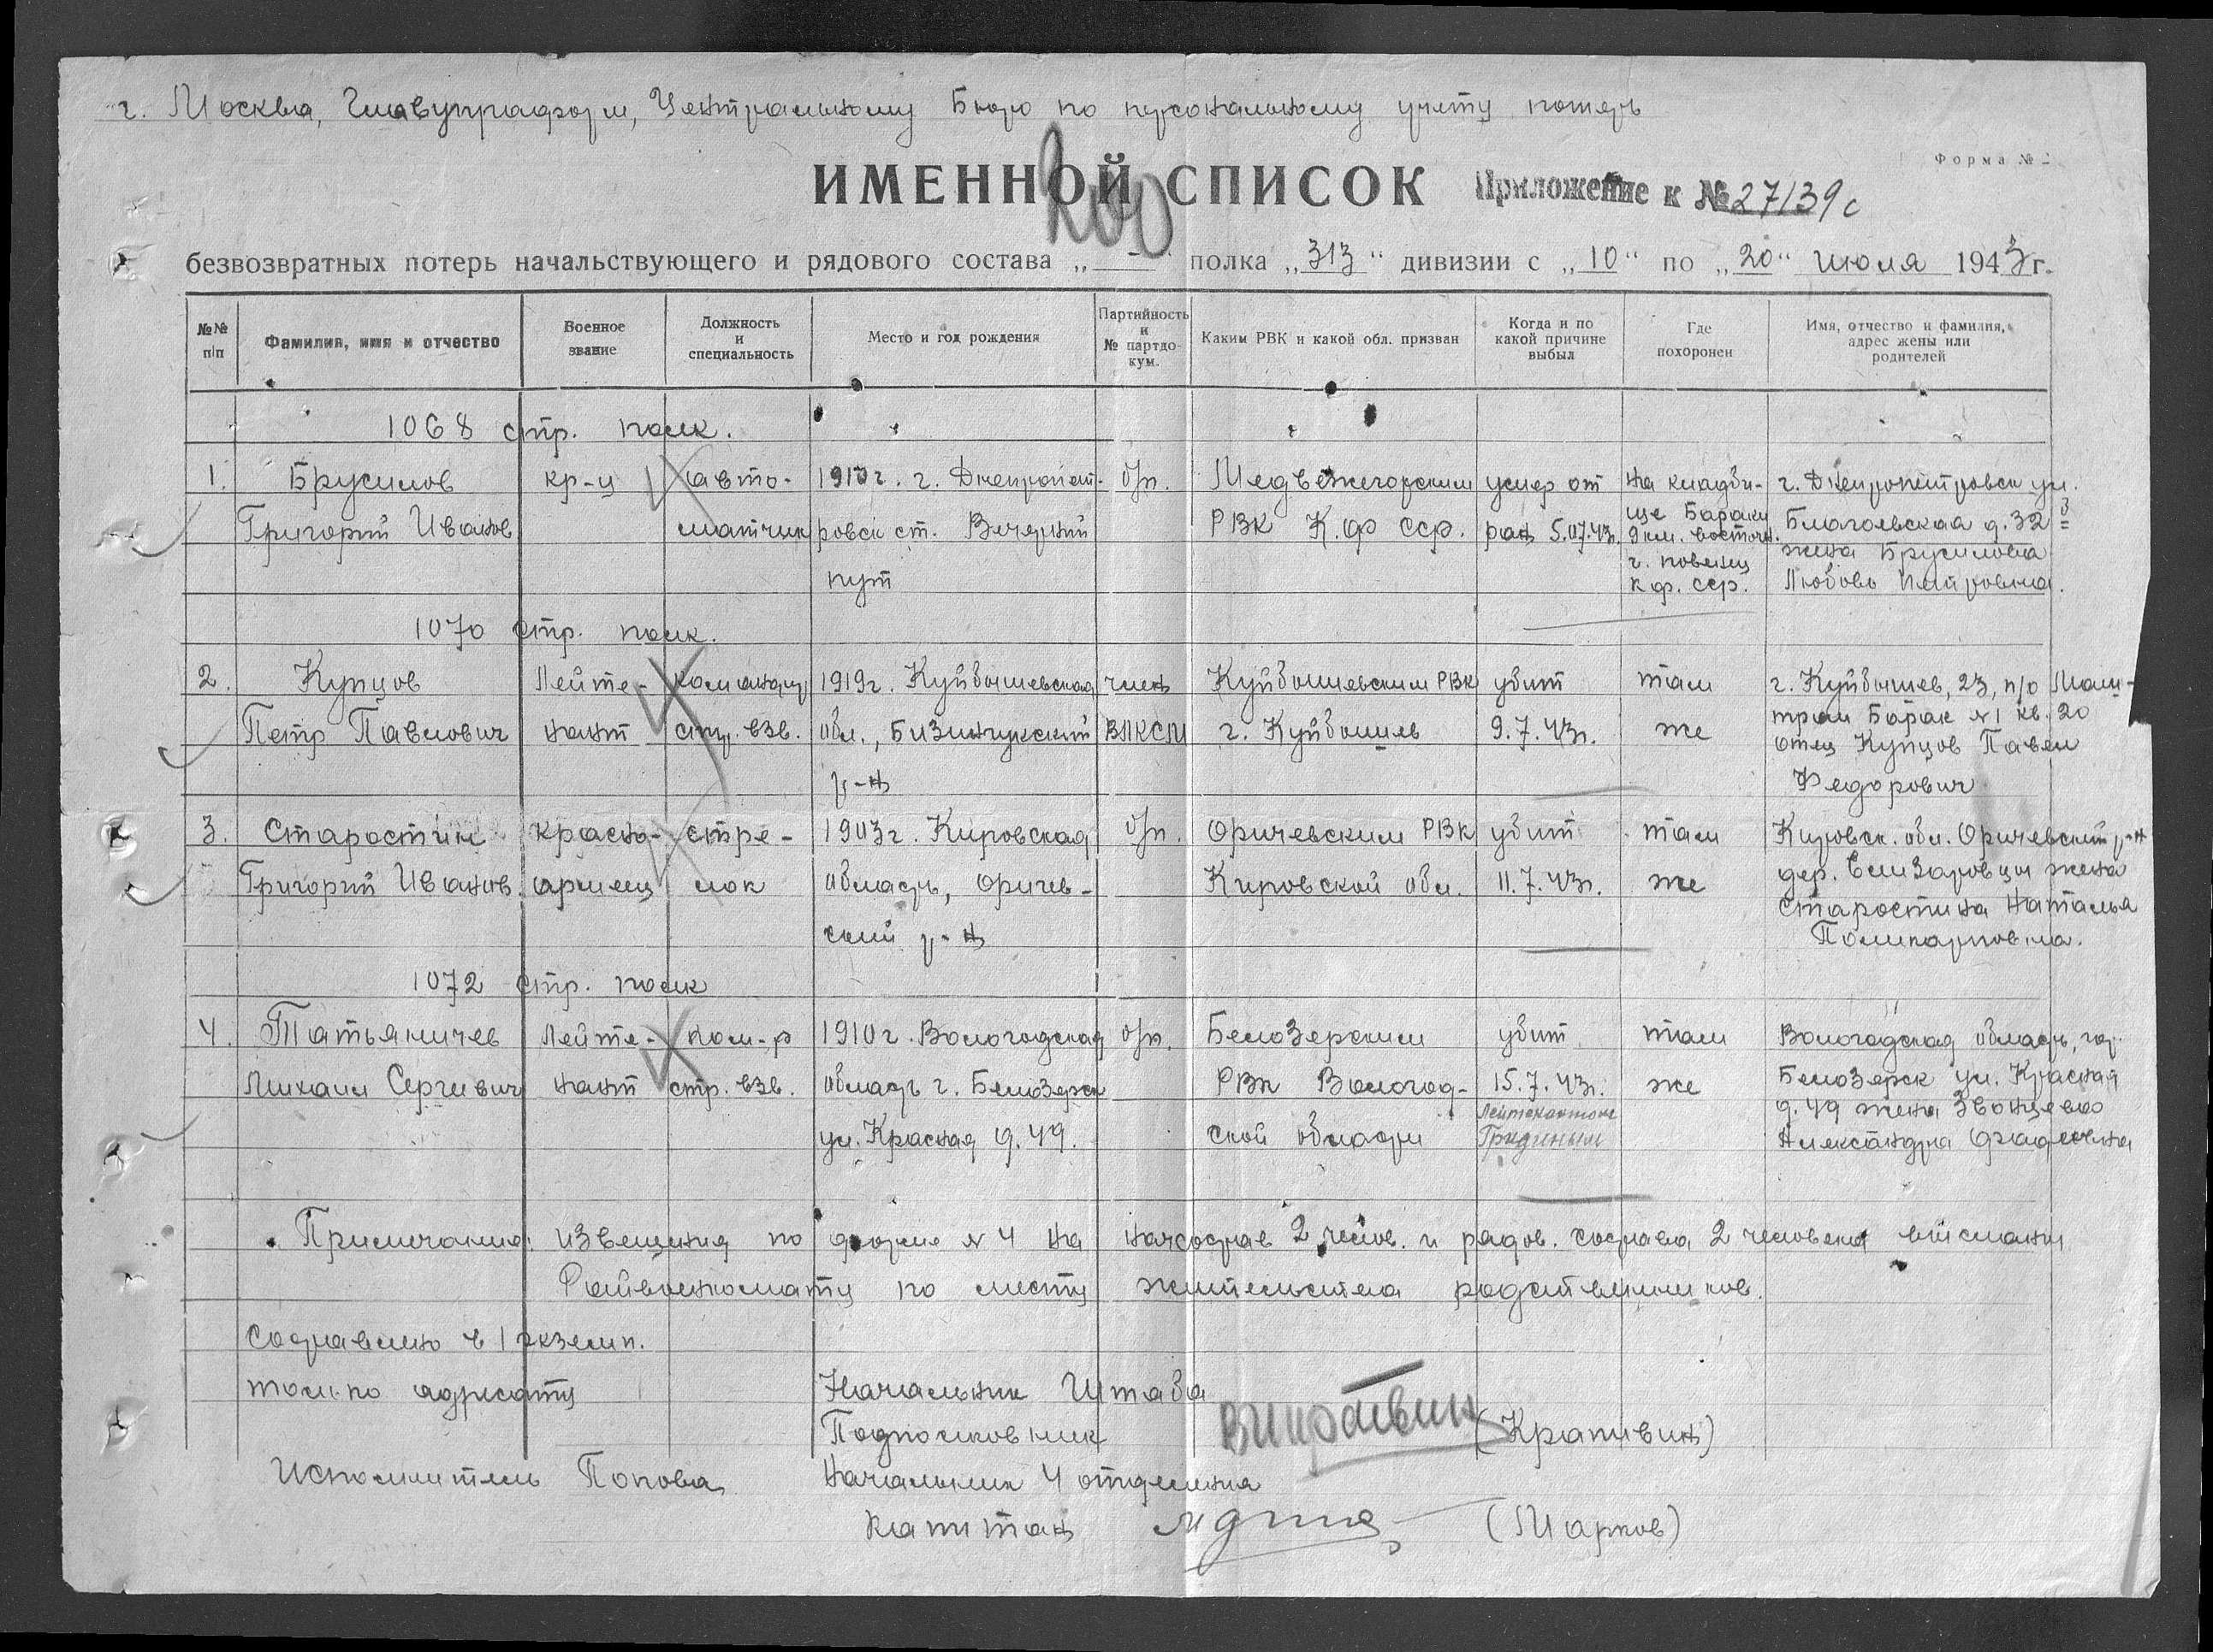 г. Москва, Главупраформ, Центральному Бюро по персональному учету потерь
Форма №
ИМЕННОЙ СПИСОК
Приложение к № 27/39с
безвозвратных потерь начальствующего и рядового состава „ - “ полка „313“ дивизии с „10“ по „20“ июля 1943г.
№№ п/п
Фамилия, имя и отчество
Военное звание
Должность и специальность
Место и год рождения
Партийность и № партдокум.
Каким РВК и какой обл. призван
Когда и по какой причине выбыл
Где похоронен
Имя, отчество и фамилия, адрес жены или родителей
1068 стр. полк.
1. Брусилов кр-ц авто- 1910г. г. Днепропет- б/п. Медвежегорским умер от на кладби- г. Днепропетровск ул.
Григорий Иванов. матчик ровск ст. Вечерний РВК К.Ф ССР. ран 5.07.43г. ще Бараки Благоевская д. 32
пут 9 км. восточн. жена Брусилова
г. повенец Любовь Петровна.
К.ф. сср.
1070 стр. полк.
2. Купцов Лейте- командир 1919г. Куйбышевская член Куйбышевским РВК убит там г. Куйбышев, 23, п/о
Петр Павлович нант стр. взв. обл., Безинчукский ВЛКСМ г. Куйбышев 9.7.43г. же Барак №1 кв. 20
р-н отец Купцов Павел
Федорович
3. Старостин красно- стре- 1903г. Кировская б/п. Оричевским РВК убит там Кировск. обл. Оричевский р-н
Григорий Иванов. армеец лок область, Оричев- Кировской обл. 11.7.43г. же дер. Елизаровцы жена
ский р-н Старостина Наталья
Поликарповна.
1072 стр. полк
4. Татьяничев Лейте- ком-р 1910г. Вологодская б/п. Белозерским убит там Вологодская область, гор.
Михаил Сергеевич нант стр. взв. область г. Белозерск РВК Вологод- 15.7.43г. же Белозерск ул. Красная
ул. Красная д. 49. ской области Лейтенантом д. 49 жена
Гридиным Александра
Примечание: извещения по форме №4 на начсостав 2 челов. и рядов. состава 2 человека высланы
Райвоенкомату по месту жительства родственников.
Составлено в 1 экземп.
только адресату
Начальник Штаба
Подполковник (Крапивин)
Исполнитель Попова
Начальник 4 отделения
капитан (Марков)